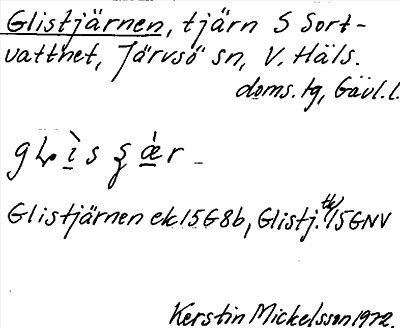 Glistjärnen, tjärn S Sort-
vattnet, Järvsö sn, V. Häls.
doms. tg, Gävl. l.
Glistjärnen ek 15G8b, Glistj. tk 15GNV
Kerstin Mickelsson 1972.